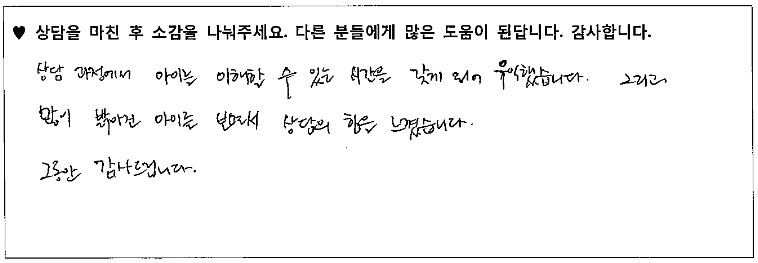 ♥ 상담을 마친 후 소감을 나눠주세요. 다른 분들에게 많은 도움이 된답니다. 감사합니다.
상담 과정에서 아이를 이해할 수 있는 시간을 갖게 되어 유익했습니다. 그리고
많이 밝아진 아이를 보면서 상담의 힘을 느꼈습니다.
그동안 감사드립니다.